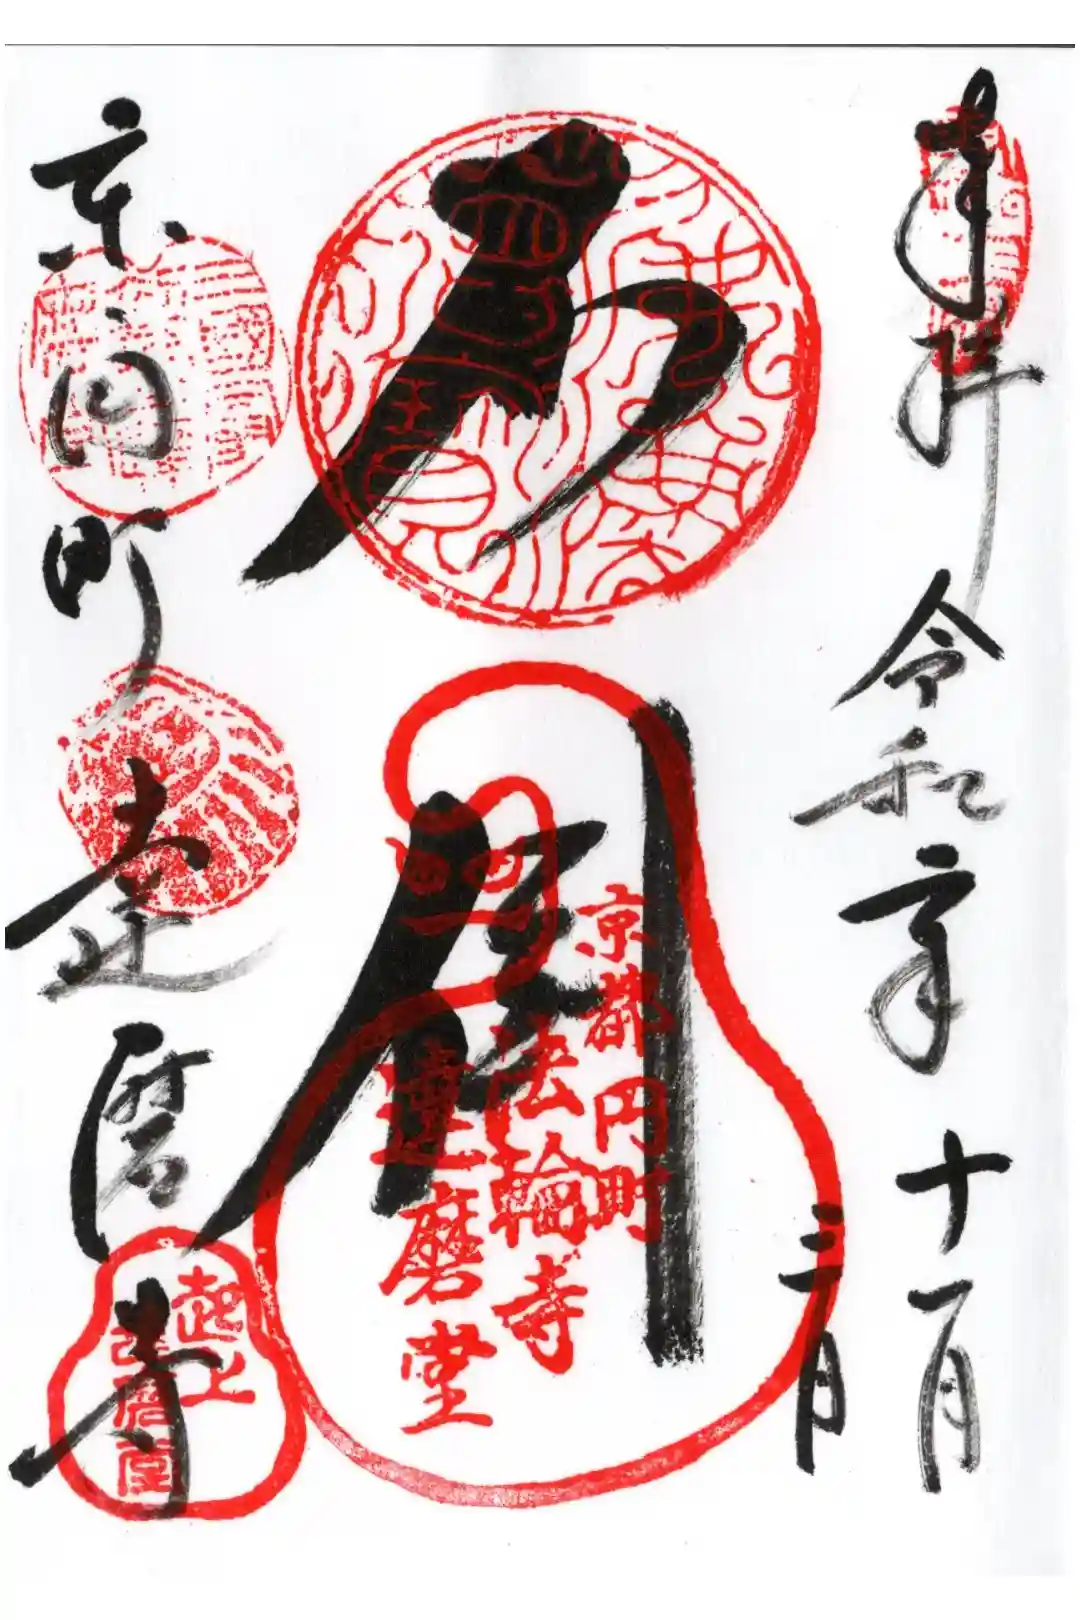 奉拝 令和二年十一月
三日
不倒
京都円町
法輪寺
達磨堂
京円町達磨寺
起上
達磨堂